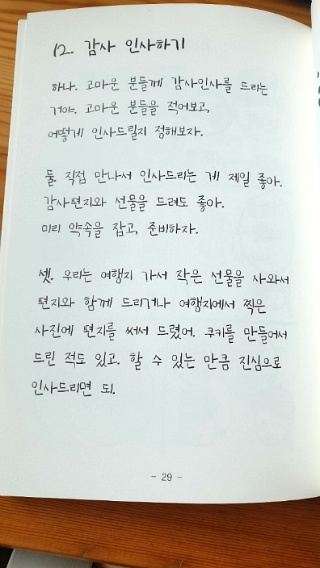 12. 감사 인사하기
하나. 고마운 분들께 감사인사를 드리는
거야. 고마운 분들을 적어보고,
어떻게 인사드릴지 정해보자.
둘. 직접 만나서 인사드리는 게 제일 좋아.
감사편지와 선물을 드려도 좋아.
미리 약속을 잡고, 준비하자.
셋. 우리는 여행지 가서 작은 선물을 사와서
편지와 함께 드리거나 여행지에서 찍은
사진에 편지를 써서 드렸어. 쿠키를 만들어서
드린 적도 있고. 할 수 있는 만큼 진심으로
인사드리면 되.
- 29 -